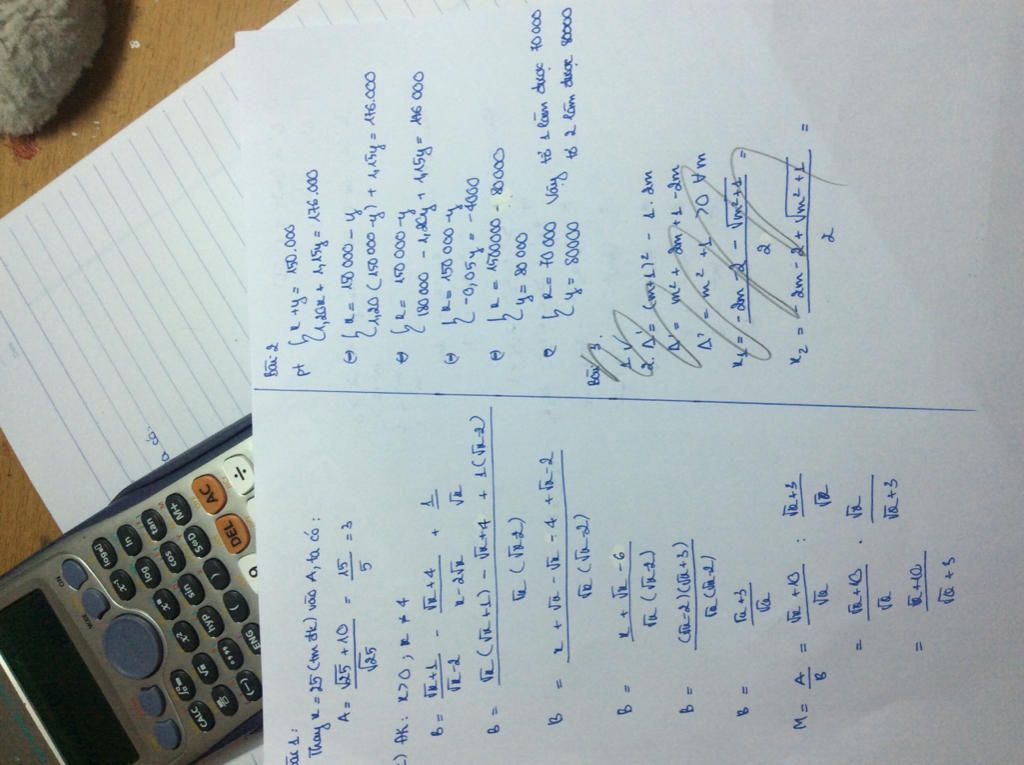 Bài 1:
Thay x = 25 (tm đk) vào A, ta có:
A = (√25 + 10)/√25 = 15/5 = 3
c) ĐK: x > 0; x ≠ 4
B = (√x+1)/(√x-2) - (√x+4)/(x-2√x) + 1/√x
B = (√x(√x+1) - √x+4 + 1(√x-2))/(√x(√x-2))
B = (x + √x - √x - 4 + √x - 2)/(√x(√x-2))
B = (x + √x - 6)/(√x(√x-2))
B = ((√x-2)(√x+3))/(√x(√x-2))
B = (√x+3)/√x
M = A/B = (√x+10)/√x : (√x+3)/√x
= (√x+10)/√x . √x/(√x+3)
= (√x+10)/(√x+3)
Bài 2
pt { x + y = 150.000
1,20x + 1,15y = 176.000
⇔ { x = 150000 - y
1,20(150000-y) + 1,15y = 176.000
⇔ { x = 150000-y
180000 - 1,20y + 1,15y = 176000
⇔ { x = 150000-y
-0,05y = -4000
⇔ { x = 1500000 - 80000
y = 80000
{ x = 70000 Vậy tổ 1 làm được 70000
y = 80000 tổ 2 làm được 80000
Bài 3
1
2. Δ' = (m+1)² - 1.2m
Δ' = m² + 2m + 1 - 2m
Δ' = m² + 1 > 0 ∀ m
x₁ = (-2m - 2 - √(m²+1))/2 =
x₂ = (2m - 2 + √(m²+1))/2 =
CALC
ON
MODE
x²
log
ln
(-)
hyp
sin
cos
tan
ENG
(
)
S⇔D
M+
DEL
AC
÷
9